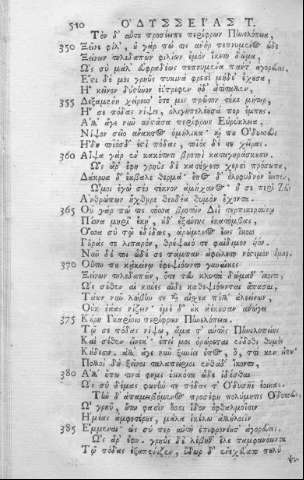 510 Ὀ͂ΔΥΣΣΕΙΑΣ Τ.
Τὸν δ' αὖτε προσέειπε περίφρων Πηνελόπεια,
350 Ξεῖνε φίλ', οὐ γάρ πώ τις ἀνὴρ πεπνυμένος ὧδε
Ξείνων τηλεδαπῶν φιλίων ἐμὸν ἵκετο δῶμα,
Ὡς σὺ μάλ' εὐφραδέως πεπνυμένα πάντ' ἀγορεύεις.
Ἔστι δέ μοι γρηῢς πυκινὰ φρεσὶ μήδε' ἔχουσα,
Ἣ κεῖνον δύστηνον ἐΰτρεφεν ἠδ' ἀτίταλλεν,
355 Δεξαμένη χείρεσσ' ὅτε μιν πρῶτον τέκε μήτηρ,
Ἥ σε πόδας νίψει, ὀλιγηπελέουσά περ ἔμπης.
Ἀλλ' ἄγε νῦν ἀνστᾶσα περίφρων Εὐρύκλεια,
Νίψον σοῖο ἄνακτος ὁμήλικα· καί που Ὀδυσσεὺς
Ἤδη τοιόσδ' ἐστὶ πόδας, τοιόσδε τε χεῖρας.
360 Αἶψα γὰρ ἐν κακότητι βροτοὶ καταγηράσκουσιν.
Ὣς ἄρ' ἔφη· γρηῢς δὲ κατέσχετο χερσὶ πρόσωπα,
Δάκρυα δ' ἔκβαλε θερμά· ἔπος δ' ὀλοφυδνὸν ἔειπεν,
Ὤ μοι ἐγὼ σέο τέκνον ἀμήχανος· ἦ σε περὶ Ζεὺς
Ἀνθρώπων ἤχθηρε θεουδέα θυμὸν ἔχοντα.
365 Οὐ γάρ πώ τις τόσσα βροτῶν Διῒ τερπικεραύνῳ
Πίονα μηρί' ἔκη', οὐδ' ἐξαίτους ἑκατόμβας,
Ὅσσα σὺ τῷ ἐδίδως, ἀρώμενος ἕως ἵκοιο
Γῆράς τε λιπαρὸν, θρέψαιό τε φαίδιμον υἱόν.
Νῦν δέ τοι οἴῳ πάμπαν ἀφείλετο νόστιμον ἦμαρ.
370 Οὕτω που κἀκείνῳ ἐφεψιόωντο γυναῖκες
Ξείνων τηλεδαπῶν, ὅτε τευ κλυτὰ δώμαθ' ἵκοιτο,
Ὡς σέθεν αἱ κύνες αἵδε καθεψιόωνται ἅπασαι,
Τάων νῦν λώβην τε καὶ αἴσχεα πόλλ' ἀλεείνων,
Οὐκ ἐάας νίζειν· ἐμὲ δ' οὐκ ἀέκουσαν ἀνώγει
375 Κούρη Ἰκαρίοιο περίφρων Πηνελόπεια.
Τῷ σε πόδας νίψω, ἅμα τ' αὐτῆς Πηνελοπείης
Καὶ σέθεν εἵνεκ', ἐπεί μοι ὀρώρεται ἔνδοθι θυμὸς
Κήδεσιν. ἀλλ' ἄγε νῦν ξυνίει ἔπος, ὅ, ττι κεν εἴπω·
Πολλοὶ δὴ ξεῖνοι ταλαπείριοι ἐνθάδ' ἵκοντο,
380 Ἀλλ' οὔπω τινά φημι ἐοικότα ὧδε ἰδέσθαι,
Ὡς σὺ δέμας φωνήν τε πόδας τ' Ὀδυσῆϊ ἔοικας.
Τὴν δ' ἀπαμειβόμενος προσέφη πολύμητις Ὀδυσσεὺς,
Ὦ γρηῦ, οὕτω φασὶν ὅσοι ἴδον ὀφθαλμοῖσιν
Ἡμέας ἀμφοτέρους, μάλα εἰκέλω ἀλλήλοιιν
385 Ἔμμεναι· ὡς σύ περ αὐτὴ ἐπιφρονέουσ' ἀγορεύεις.
Ὣς ἄρ' ἔφη· γρηῢς δὲ λέβηθ' ἕλε παμφανόωντα
Τῷ πόδας ἐξαπένιζεν, ὕδωρ δ' ἐνεχεύατο πολὺ